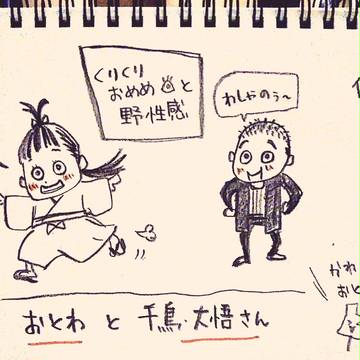 くりくり
おめめ と
野性感
わしゃのぅ〜
おとわ と 千鳥・大悟さん
かわ
おと